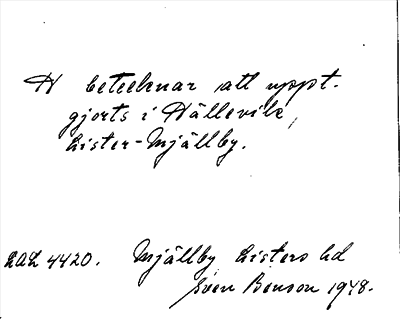 H betecknar att uppt.
gjorts i Hällevik,
Lister-Mjällby.
LAL 4420. Mjällby Listers hd
Sven Benson 1948.